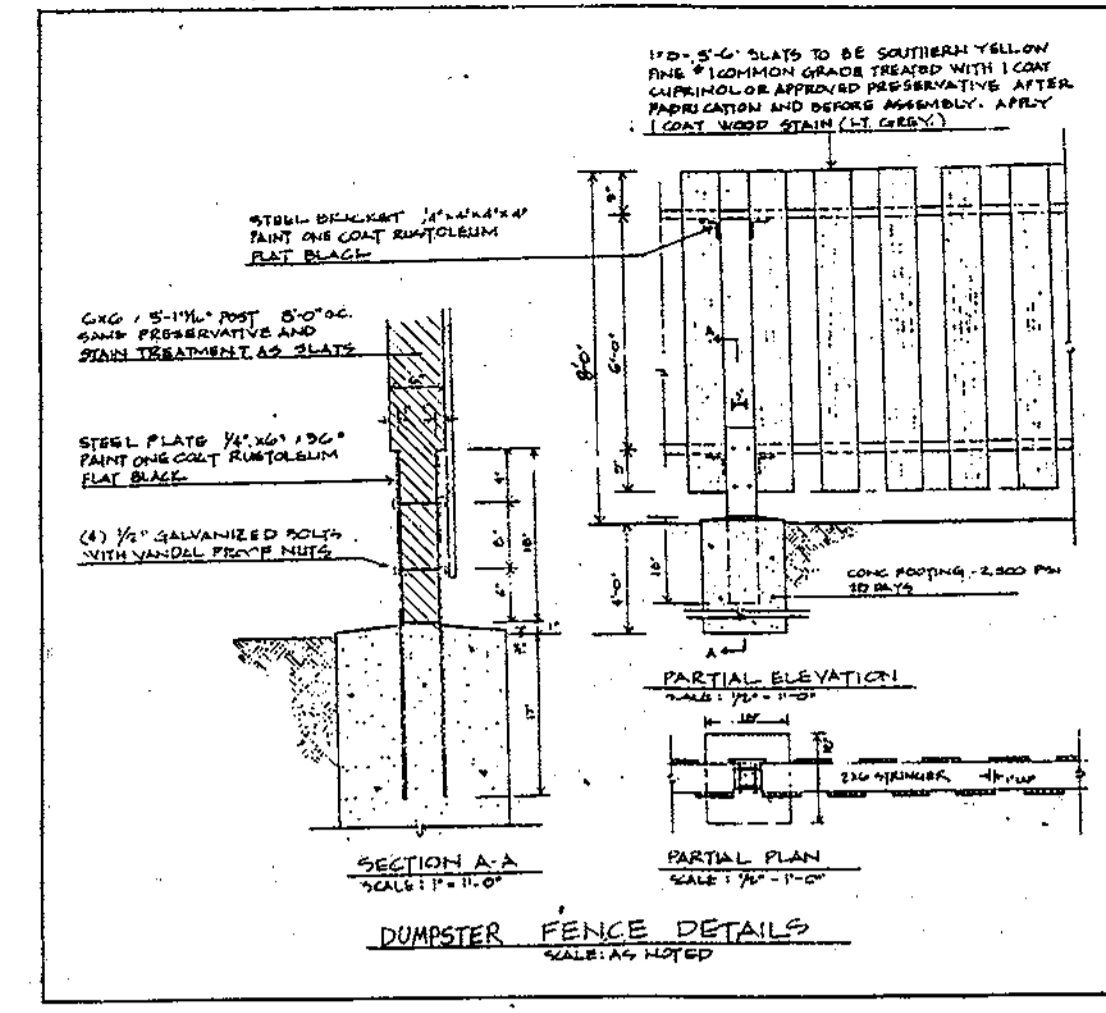 SLATS TO BE SOUTHERN YELLOW
PINE #1 COMMON GRADE TREATED WITH 1 COAT
CUPRINOL OR APPROVED PRESERVATIVE AFTER
FABRICATION AND BEFORE ASSEMBLY. APPLY
1 COAT WOOD STAIN (LT. GREY.)
STEEL BRACKET 1/4"x4"x4"x4"
PAINT ONE COAT RUSTOLEUM
FLAT BLACK
6x6 POST 8'-0" O.C.
SAME PRESERVATIVE AND
STAIN TREATMENT AS SLATS
STEEL PLATE 1/4" x 6" x 36"
PAINT ONE COAT RUSTOLEUM
FLAT BLACK
(4) 1/2" GALVANIZED BOLTS
WITH VANDAL PROOF NUTS
4"
18"
1"
17"
8'-0"
6'-0"
4'-0"
A
A
CONC FOOTING - 2,500 PSI
DAYS
PARTIAL ELEVATION
SCALE: 1/2" = 1'-0"
2x6 STRINGER
SECTION A-A
SCALE: 1" = 1'-0"
PARTIAL PLAN
SCALE: 1/2" - 1'-0"
DUMPSTER FENCE DETAILS
SCALE: AS NOTED